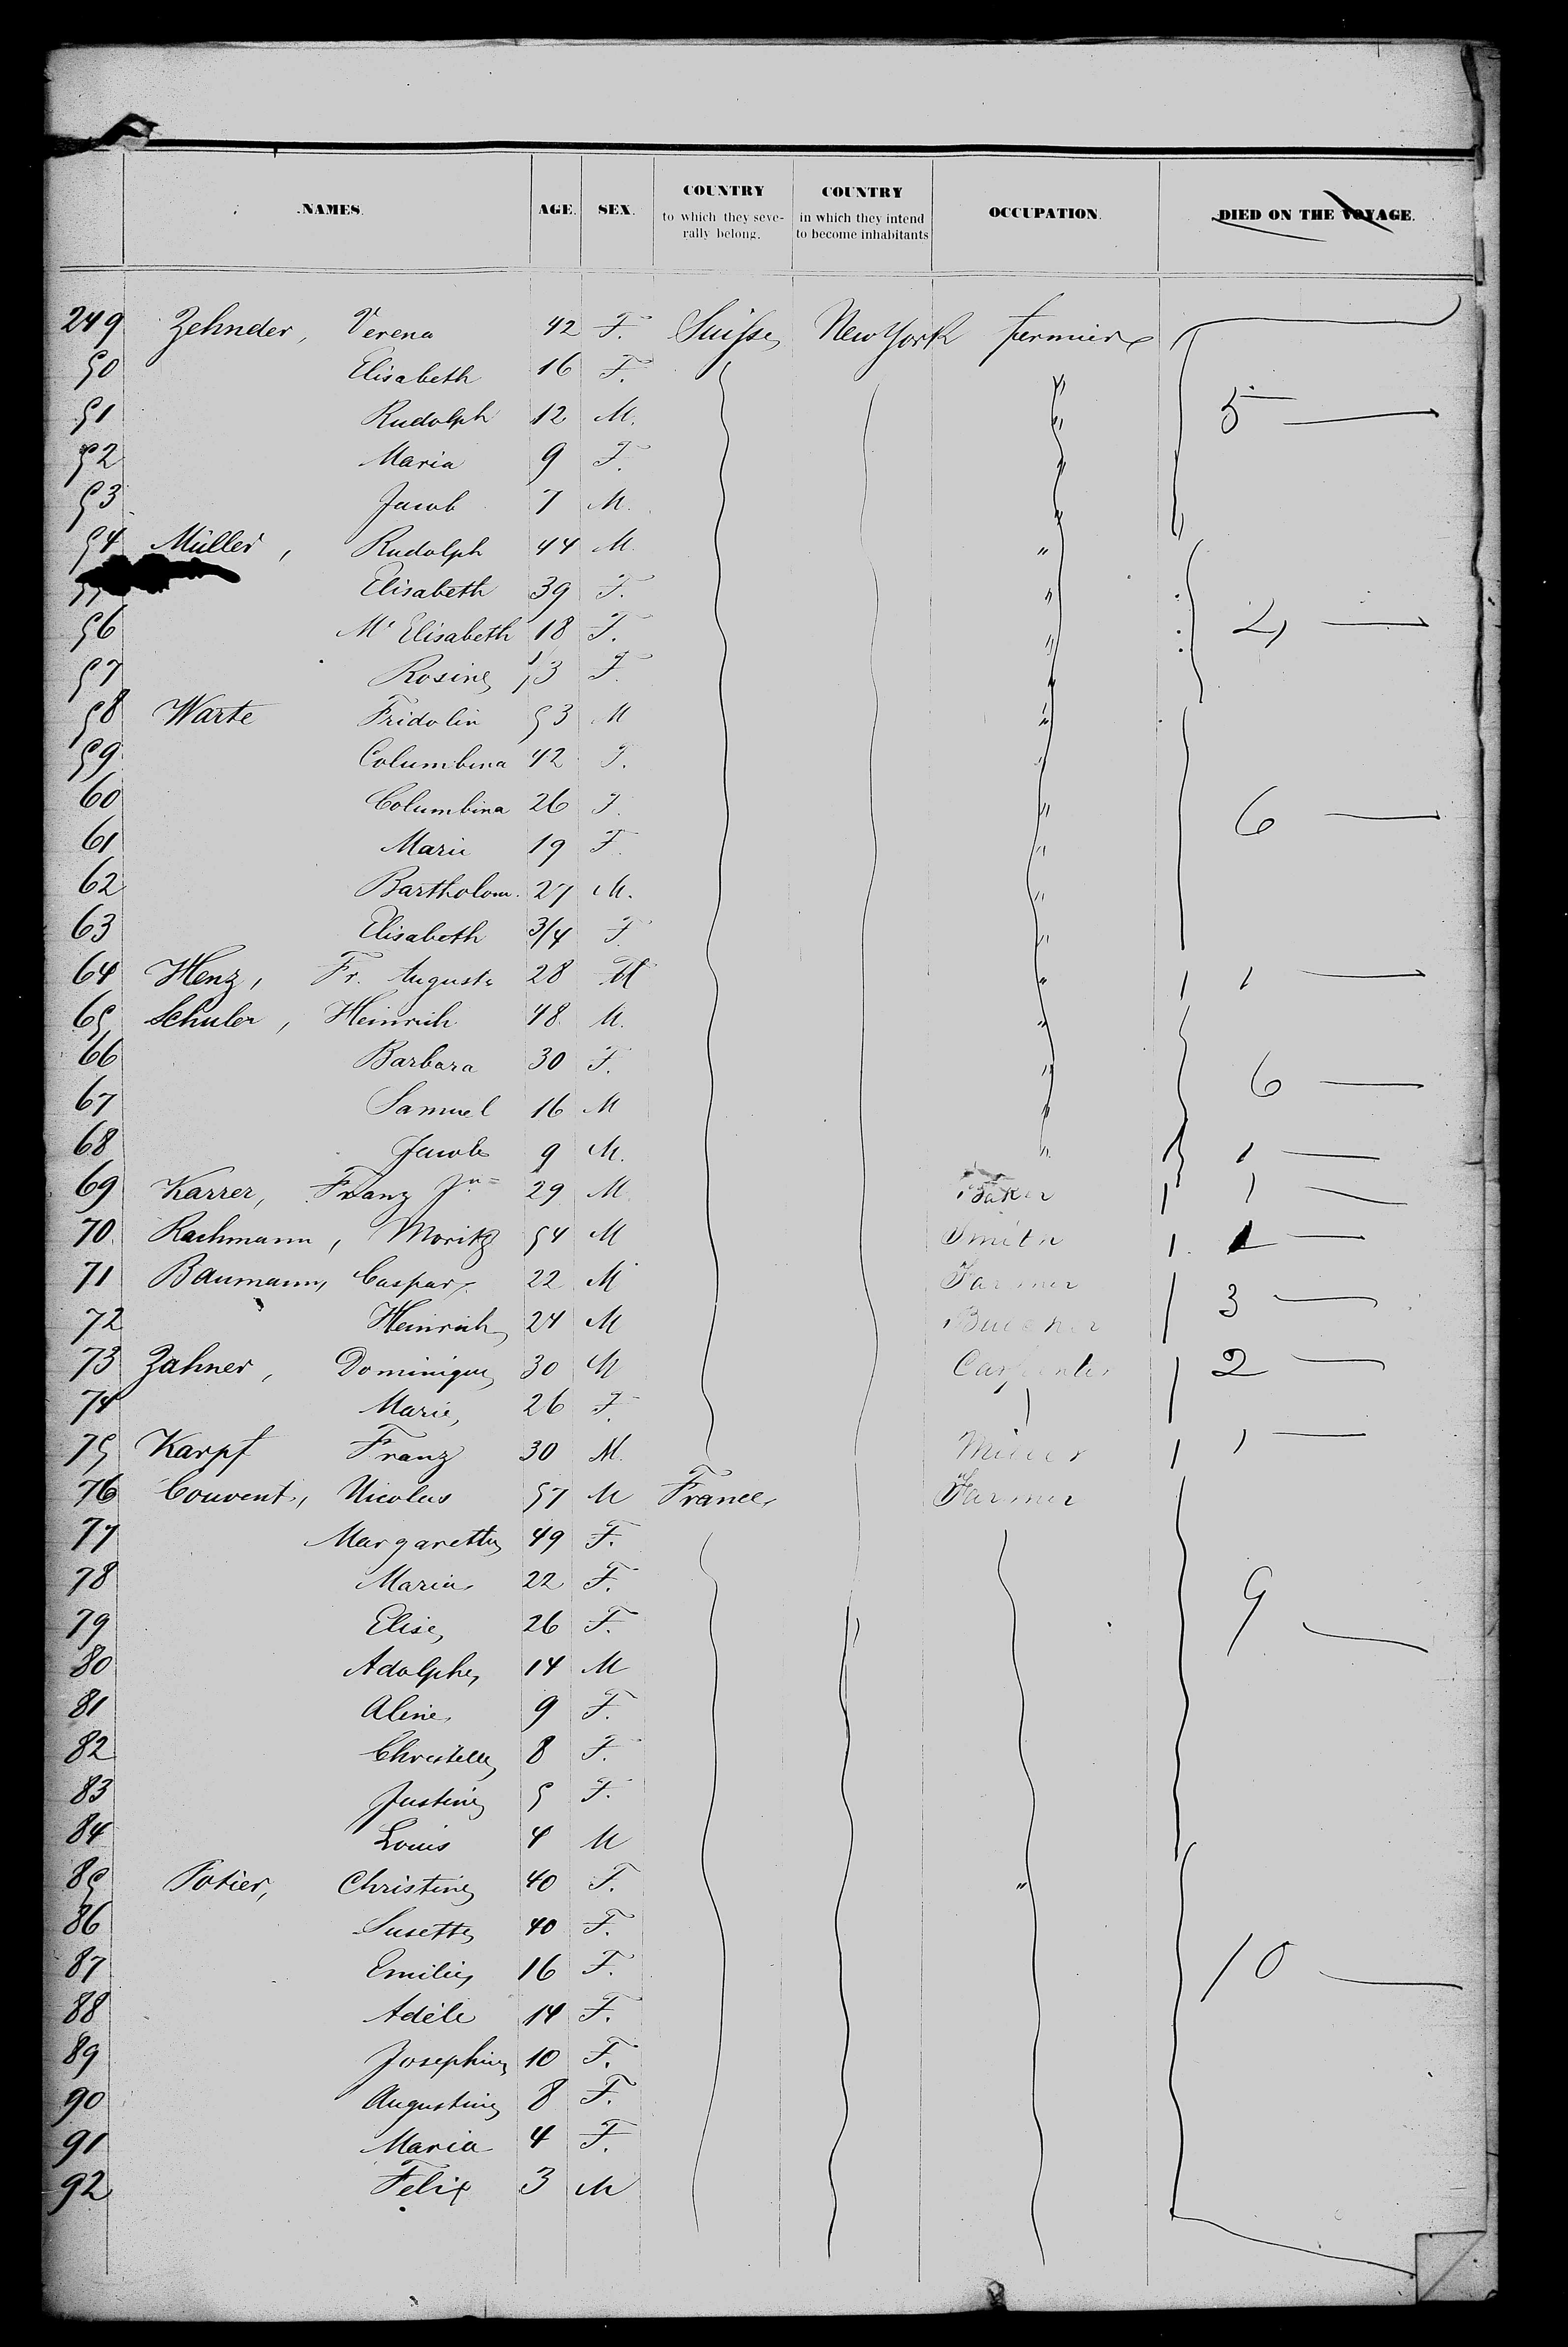 NAMES. AGE. SEX. COUNTRY to which they severally belong. COUNTRY in which they intend to become inhabitants OCCUPATION. DIED ON THE VOYAGE.
249 Zehnder, Verena 42 F. Suisse New York fermier
50 Elisabeth 16 F. "
51 Rudolph 12 M. " 5 —
52 Maria 9 F. "
53 Jacob 7 M. "
54 Müller, Rudolph 44 M. "
Elisabeth 39 F. "
56 Mᵃ Elisabeth 18 F. "
57 Rosine 13 F. "
58 Warte Fridolin 53 M "
59 Columbina 42 F. "
60 Columbina 26 F. " 6 —
61 Marie 19 F. "
62 Bartholom. 27 M. "
63 Elisabeth 3/4 F. "
64 Henz, Fr. August 28 M " 1 —
65 Schuler, Heinrich 48 M. "
66 Barbara 30 F. " 6 —
67 Samuel 16 M "
68 Jacob 9 M. " 1 —
69 Karrer, Franz Jⁿ 29 M Baker 1 —
70 Rachmann, Moritz 54 M Smith 1 —
71 Baumann, Caspar 22 M Farmer 3 —
72 Heinrich 24 M
73 Zahner, Dominique 30 M Carpenter 2 —
74 Marie, 26 F.
75 Karpf Franz 30 M. Miller 1 —
76 Couvent, Nicolas 57 M France Farmer
77 Margarettha 49 F.
78 Maria 22 F. 9 —
79 Elise 26 F. "
80 Adolphe 14 M
81 Aline 9 F.
82 Christelle 8 F.
83 Justine 5 F.
84 Louis 4 M
85 Potier, Christine 40 F. "
86 Susette 40 F.
87 Emilie 16 F. 10 —
88 Adéle 14 F.
89 Josephine 10 F.
90 Augustine 8 F.
91 Maria 4 F.
92 Felix 3 M